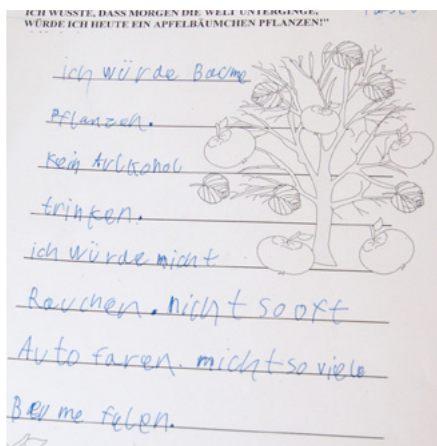 ICH WÜSSTE, DASS MORGEN DIE WELT UNTERGINGE,
WÜRDE ICH HEUTE EIN APFELBÄUMCHEN PFLANZEN!"
ich würde Baume
Pflanzen.
Kein Arlkohol
trinken.
ich würde nicht
Rauchen. nicht so oft
Auto faren. nicht so viele
Beume felen.